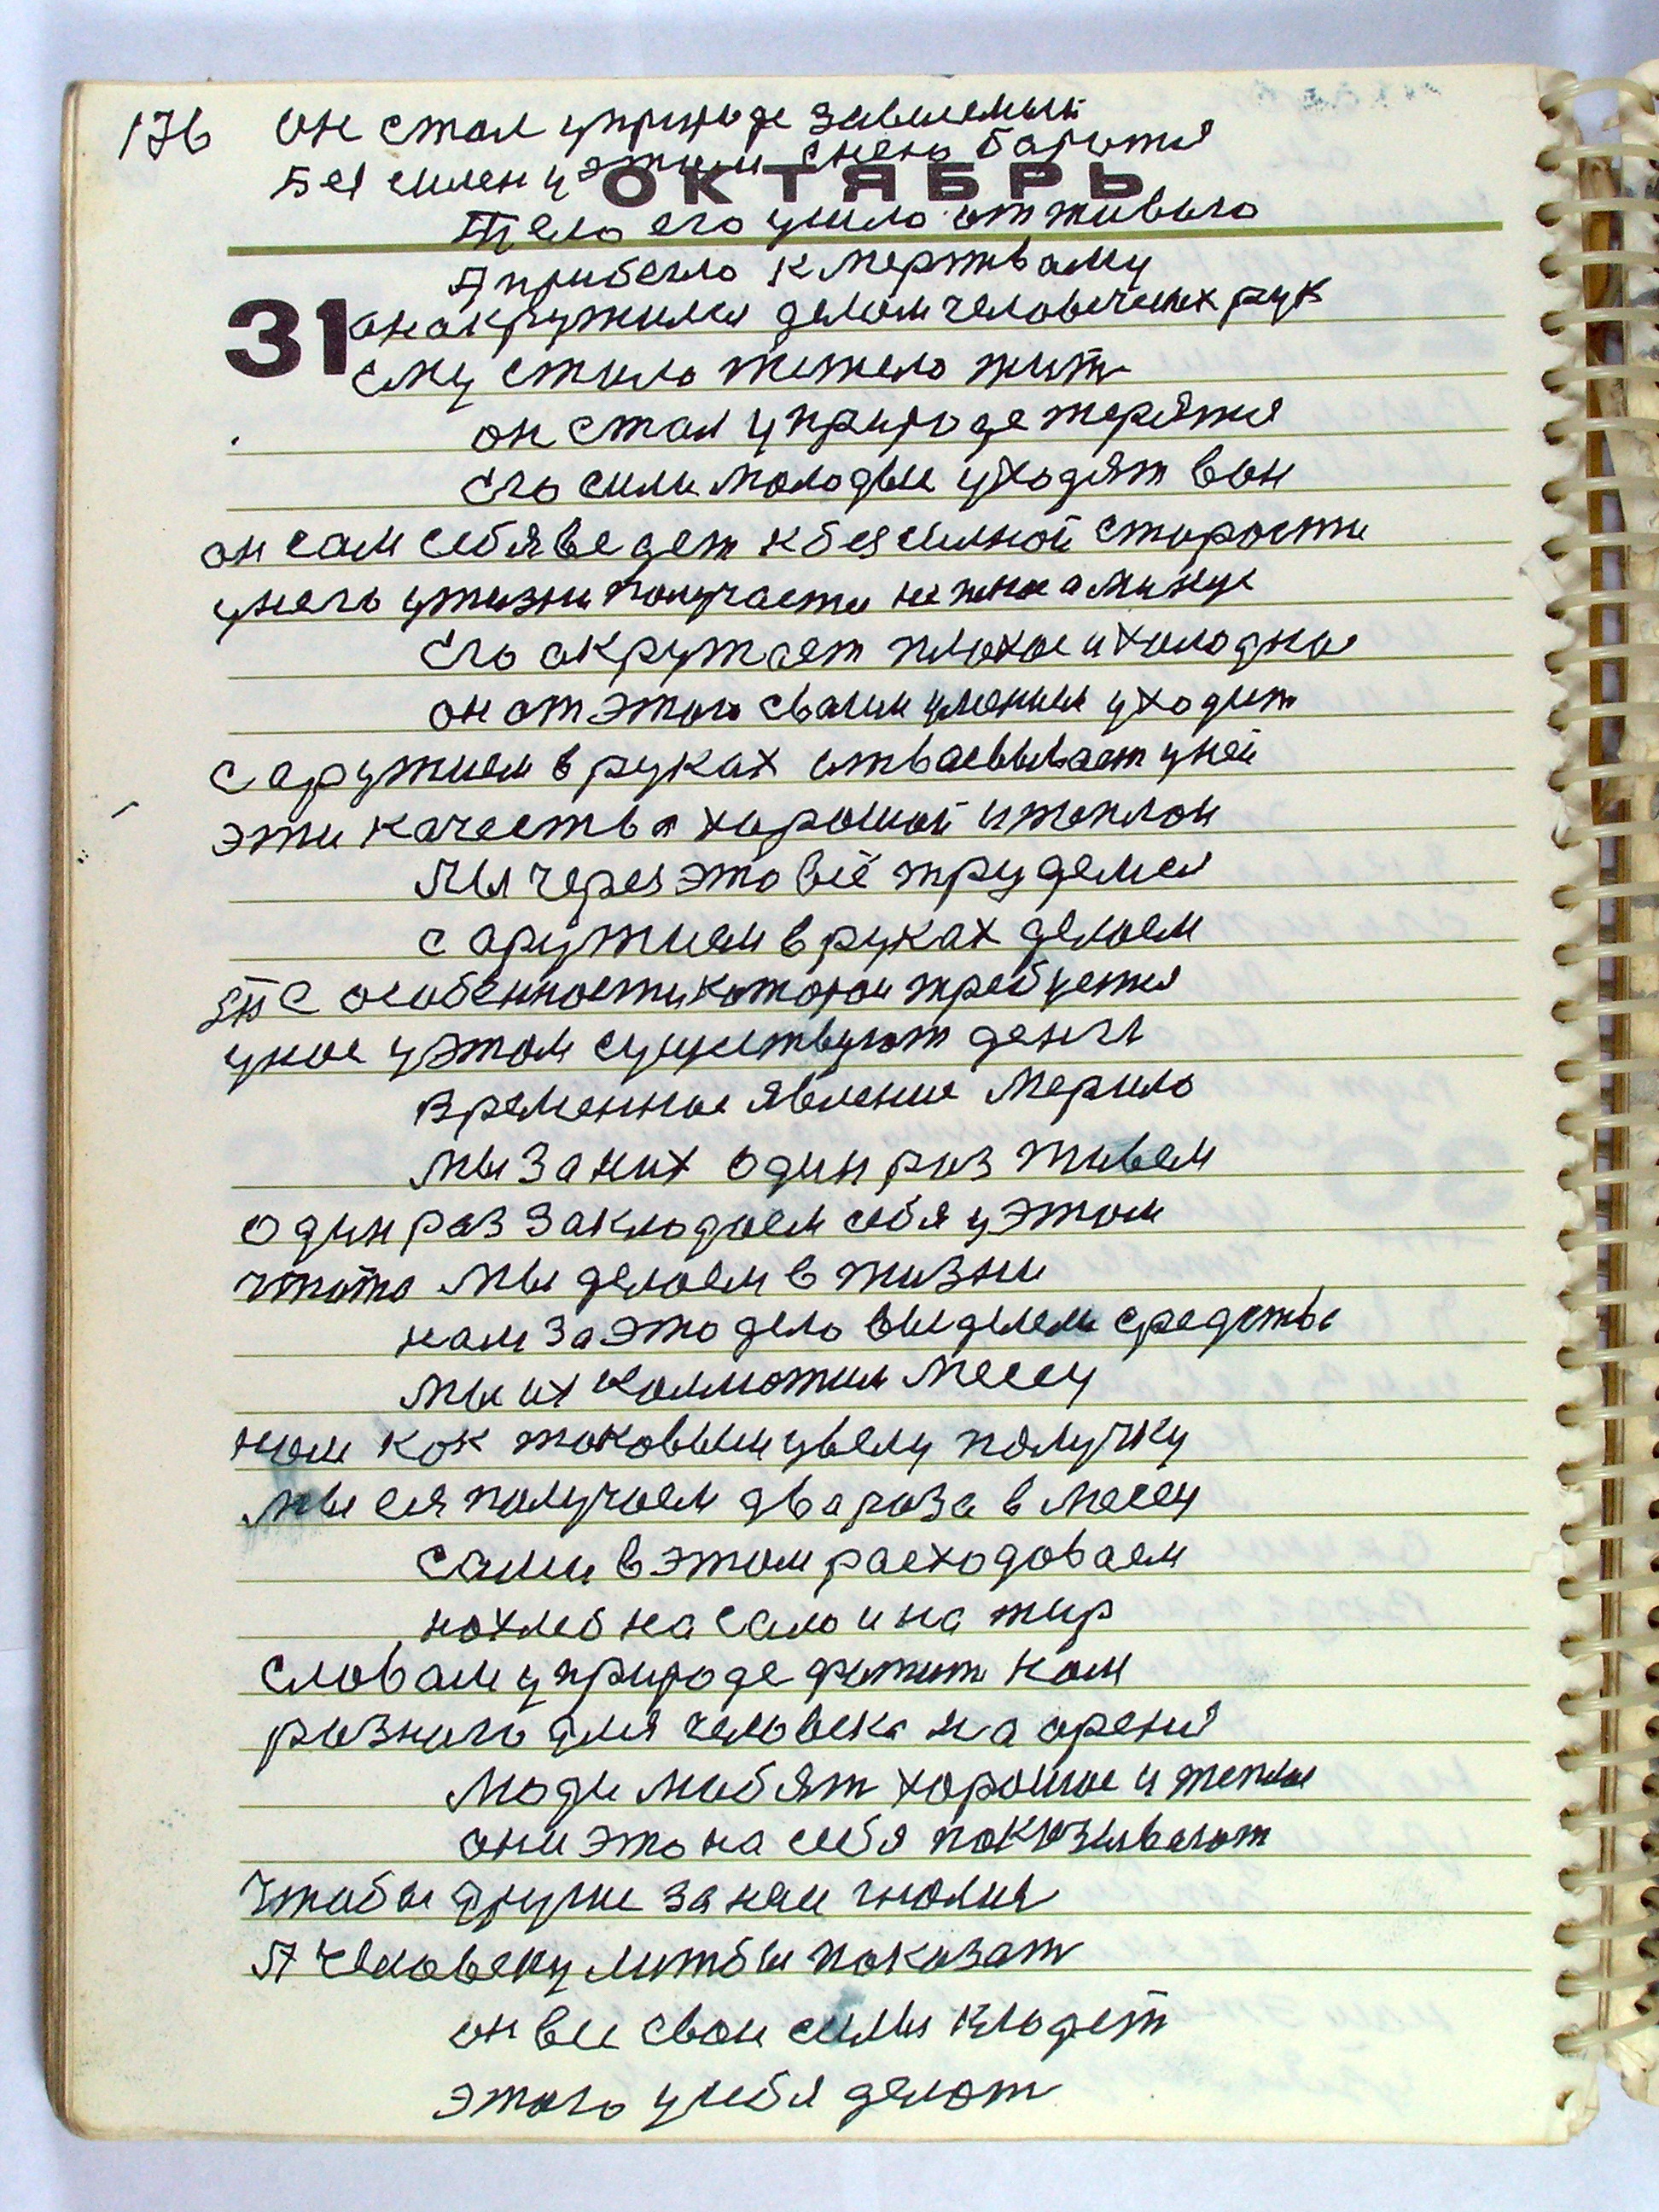 176 Он стал у природе зависемый
Безсилен у этим снею баротся
ОКТЯБРЬ
Тело его ушло от живого
А прибегло к мертвому
31
он акружился делом человеческих рук
ему стало тежело жить
он стал у природе терятся
Его сили молодые уходят вон
он сам себя ведет к безсилной старости
унего ужизни получаетси не плюс а минус
Его акружает плохое и холодное
он от этого своим умением уходит
с аружием в руках отваевывает у ней
эти качества хорошой и теплои
Мы через это всё трудемся
с аружием в руках делаем
с особенности которои требуется
унас уэтом существуют денги
временное явление мерило
мы за них один раз живем
один раз закладоем себя уэтом
чтото мы делаем в жизни
нам за это дело выделели средства
мы их комможим месец
нам как таковыми увели получку
мы ея получаем два раза в месец
сами в этом расходоваем
на хлеб на сало и на жир
словам у природе держит нам
разного для человека на арения
Люди любят хорошое и теплое
они это на себя показывают
Чтобы другие за ним гнолись
А человеку литобы показат
он все свои силы кладет
этого у себя делат